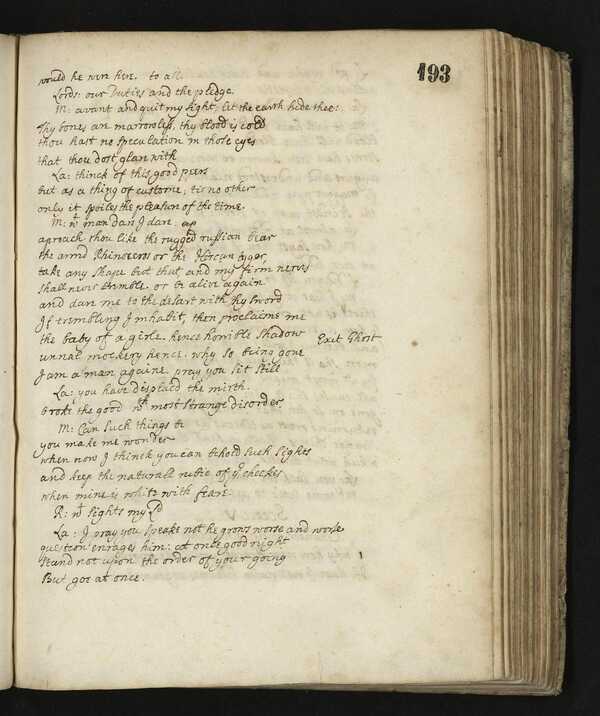 193
would he were here. to all.
Lords: our Duties and the pledge.
M: avant and quit my sight, let the earth hide thee:
Thy bones are marrowless, thy blood is cold
thou hast no speculation in those eyes
that thou dost glare with
La: thinck of this good peers
but as a thing of custome; tis no other
only it spoiles the pleasure of the time
M: wt man dars I dare:
aproach thou like the rugged russian bear
the armd Rhinoceros or the Hircan tiger,
take any shape but that and my firm nerves
shall never tremble. or be alive again
and dare me to the desart with thy sword
If trembling I inhabit, then proclaime me
the baby of a girle. hence horrible shadow Exit Ghost
unreal mockery hence. why so being gone
I am a man againe. pray you sit still
La: you have displacd the mirth.
broke the good wth most strange disorder.
M: Can such things be
you make me wonder
when now I thinck you can behold such sights
and keep the naturall rubie of yr cheekes
when mine is white with feare.
R: wt sights my Ld
La: I pray you speake not he grows worse and worse
question enrages him: at once good night
stand not upon the order of your going
But goe at once.